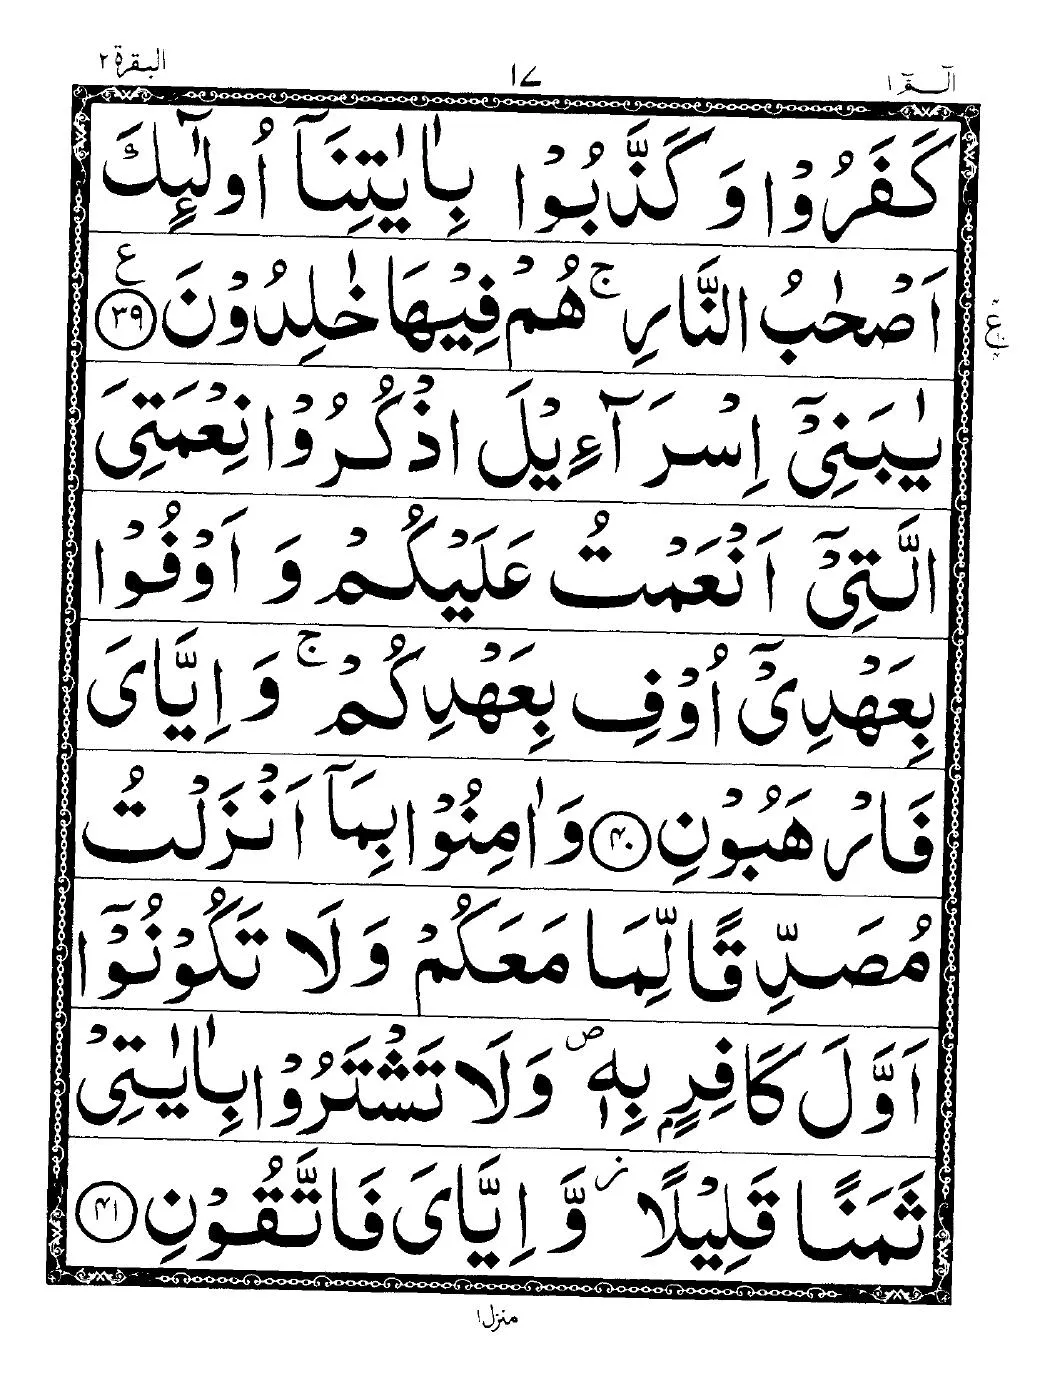 الٓـمّٓ ١
١٧
البقرة ٢
كَفَرُوْا وَكَذَّبُوْا بِاٰيٰتِنَآ اُولٰٓئِكَ
اَصْحٰبُ النَّارِ ۚ هُمْ فِيْهَا خٰلِدُوْنَ ﴿٣٩﴾ ع
يٰبَنِيْٓ اِسْرَآءِيْلَ اذْكُرُوْا نِعْمَتِيَ
الَّتِيْٓ اَنْعَمْتُ عَلَيْكُمْ وَ اَوْفُوْا
بِعَهْدِيْٓ اُوْفِ بِعَهْدِكُمْ ۚ وَ اِيَّايَ
فَارْهَبُوْنِ ﴿٤٠﴾ وَاٰمِنُوْا بِمَآ اَنْزَلْتُ
مُصَدِّقًا لِّمَا مَعَكُمْ وَلَا تَكُوْنُوْٓا
اَوَّلَ كَافِرٍۭ بِهٖ ۪ وَلَا تَشْتَرُوْا بِاٰيٰتِيْ
ثَمَنًا قَلِيْلًا ز وَّ اِيَّايَ فَاتَّقُوْنِ ﴿٤١﴾
منزل ١